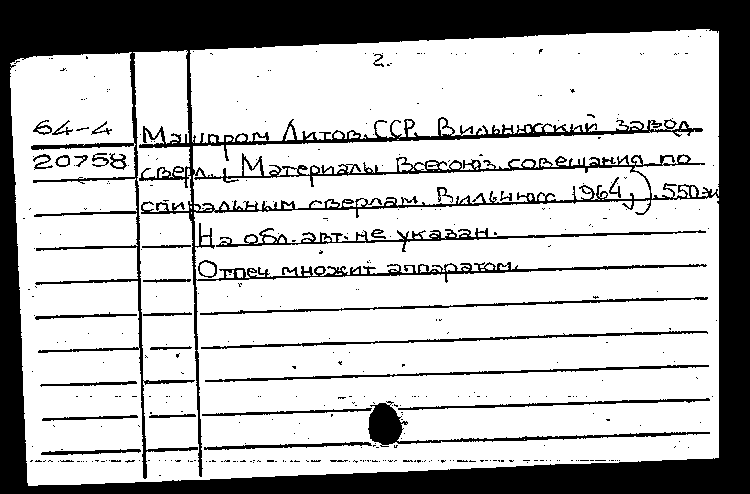 2.
64-4 Машпром Литов. ССР. Вильнюсский завод
20758 сверл. [Материалы Всесоюз. совещания по
спиральным сверлам. Вильнюс 1964,). 550 э
На обл. авт. не указан.
Отпеч. множит. аппаратом.